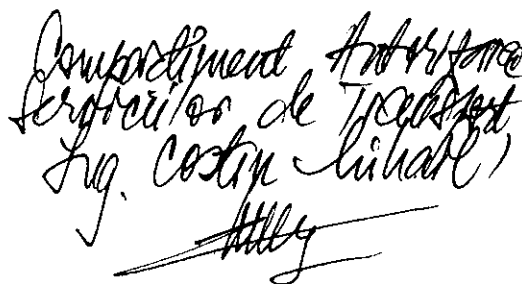 Compartiment Autorizarea
Serviciilor de Transport
Ing. Costin Mihail